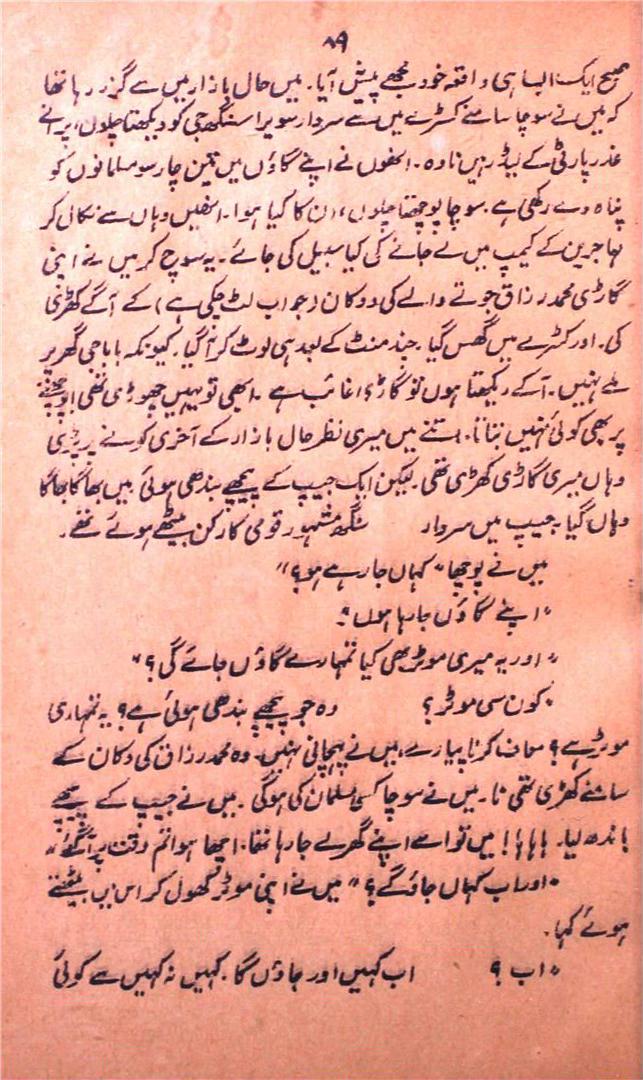 ۸۹
صبح ایک ایسا ہی واقعہ خود مجھے پیش آیا۔ میں ہال بازار میں سے گزر رہا تھا
کہ میں نے سوچا سامنے کٹڑے میں سے سردار سویرا سنگھ جی کو دیکھتا چلوں، پرانے
غدر پارٹی کے لیڈر ہیں نا وہ۔ انھوں نے اپنے گاؤں میں تین چار سو مسلمانوں کو
پناہ دے رکھی ہے۔ سوچا پوچھتا چلوں، ان کا کیا ہوا۔ انھیں وہاں سے نکال کر
مہاجرین کے کیمپ میں لے جانے کی کیا سبیل کی جائے۔ یہ سوچ کر میں نے اپنی
گاڑی محمد رزاق جوتے والے کی دوکان (جو اب لٹ چکی ہے) کے آگے کھڑی
کی۔ اور کٹرے میں گھس گیا۔ چند منٹ کے بعد ہی لوٹ کر آ گیا۔ کیونکہ باباجی گھر پر
ملے نہیں۔ آ کے دیکھتا ہوں تو گاڑی غائب ہے۔ ابھی تو یہیں چھوڑی تھی! پوچھنے
پر بھی کوئی نہیں بتاتا۔ اتنے میں میری نظر ہال بازار کے آخری کونے پر پڑی
وہاں میری گاڑی کھڑی تھی۔ لیکن ایک جیپ کے پیچھے بندھی ہوئی میں بھاگا بھاگا
وہاں گیا۔ جیپ میں سردار سنگھ مشہور قومی کارکن بیٹھے ہوئے تھے۔
میں نے پوچھا "کہاں جا رہے ہو؟"
"اپنے گاؤں جا رہا ہوں"۔
"اور یہ میری موٹر بھی کیا تمہارے گاؤں جائے گی؟"
"کون سی موٹر؟ وہ جو پیچھے بندھی ہوئی ہے؟ یہ تمہاری
موٹر ہے؟ معاف کرنا پیارے، میں نے پہچانی نہیں۔ وہ محمد رزاق کی دکان کے
سامنے کھڑی تھی نا۔ میں نے سوچا کسی مسلمان کی ہو گی۔ میں نے جیپ کے پیچھے
باندھ لیا۔ ہاہاہا! میں تو اسے اپنے گھر لے جا رہا تھا۔ اچھا ہوا تم وقت پر آ گئے"
"اور اب کہاں جاؤ گے؟" میں نے اپنی موٹر کھول کر اس میں بیٹھتے
ہوئے کہا۔
"اب؟ اب کہیں اور جاؤں گا۔ کہیں نہ کہیں سے کوئی